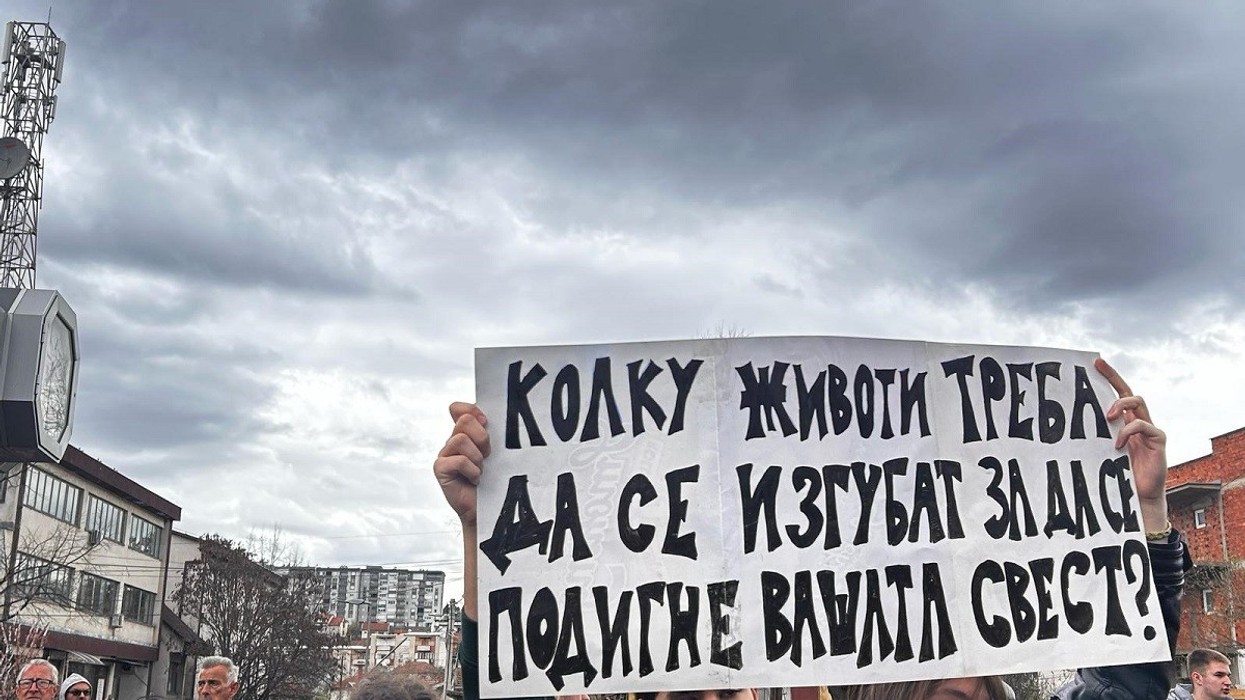 КОЛКУ ЖИВОТИ ТРЕБА
ДА СЕ ИЗГУБАТ ЗА ДА СЕ
ПОДИГНЕ ВАШАТА СВЕСТ?